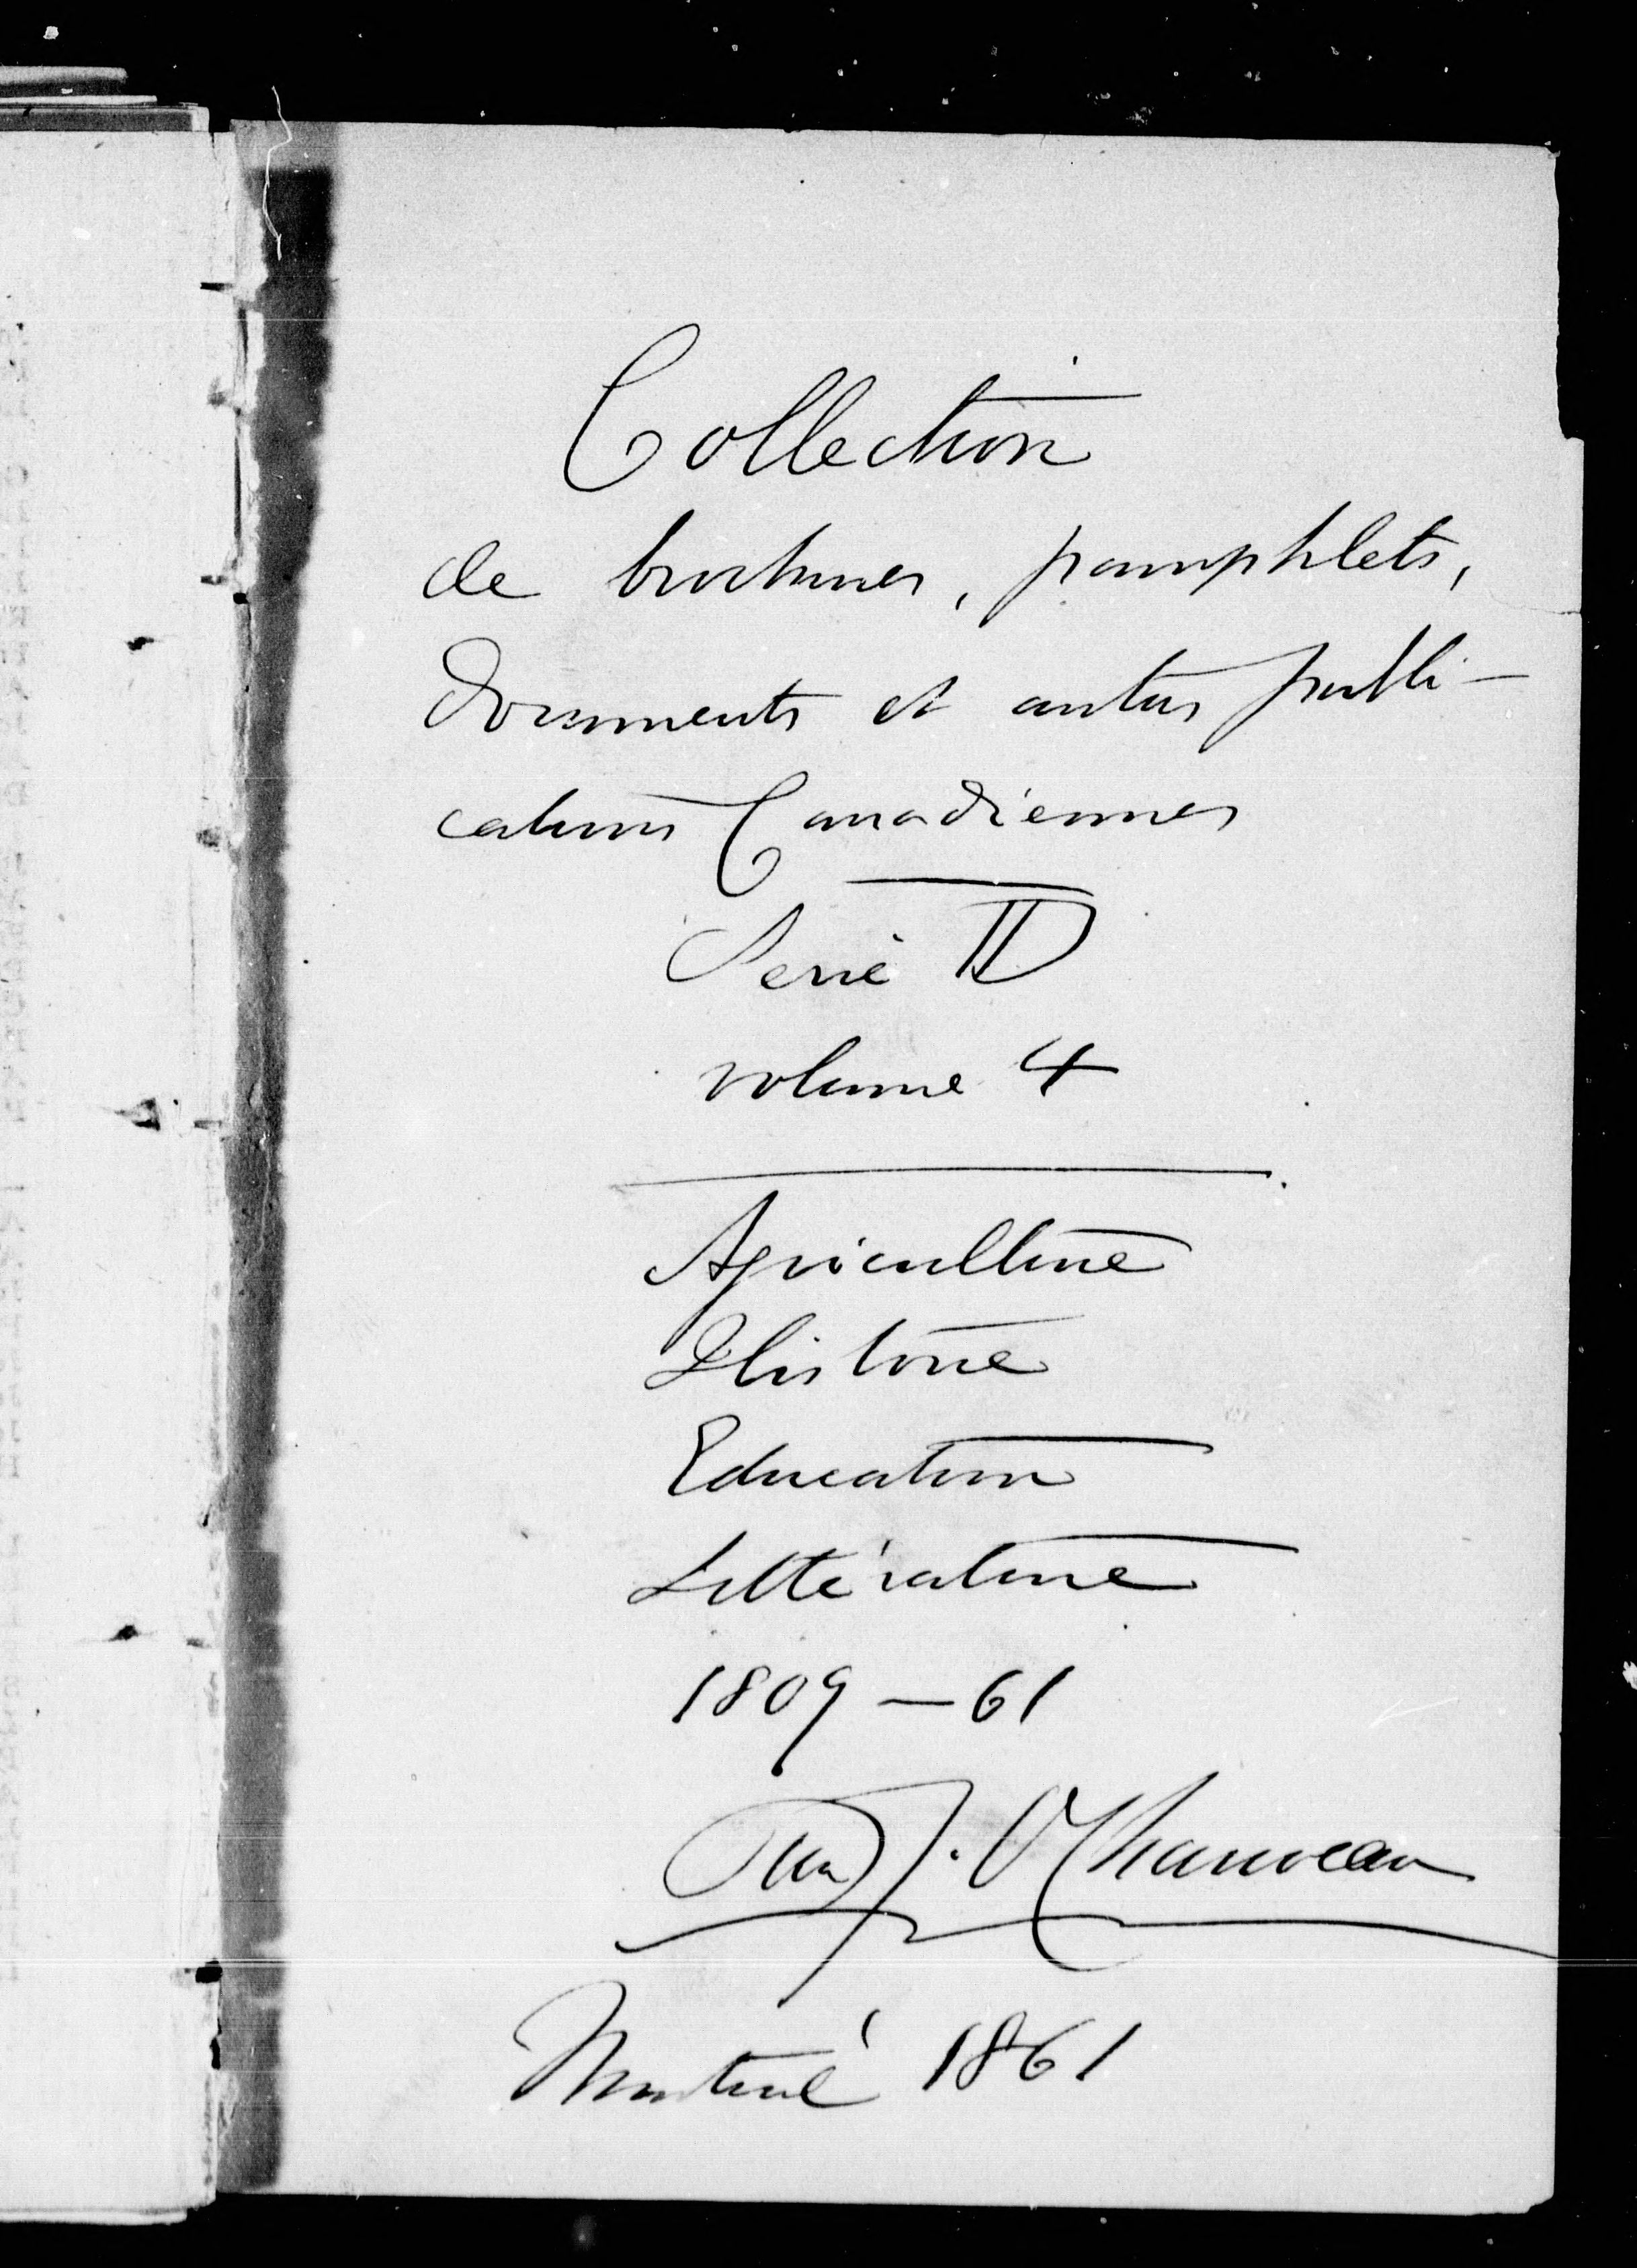 Collection
de brochures, pamphlets,
documents et autres publi-
cations Canadiennes
Serie D
volume 4
Agriculture
Histoire
Education
Littérature
1809 — 61
J. O Chauveau
Montreal 1861